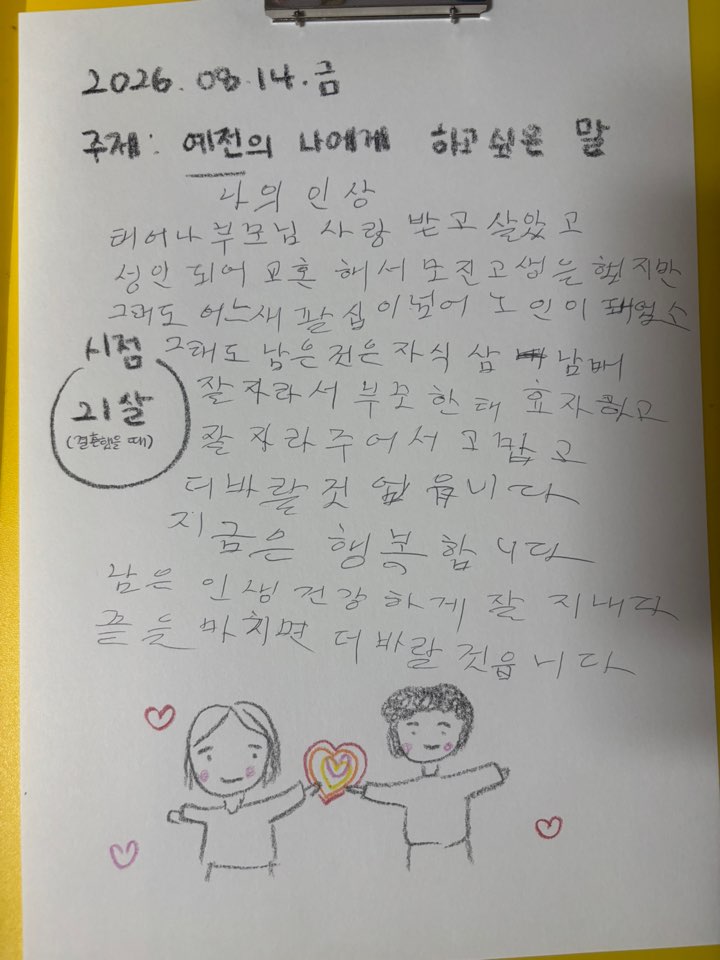 2026.08.14.금
주제: 예전의 나에게 하고싶은 말
나의 인상
태어나 부모님 사랑 받고 살았고
성인 되어 교혼 해서 모진고생을 했지만
그래도 어느새 팔십이넘어 노인이
시점
21살
(결혼했을 때)
그태도 남은 것은 자식 삼 남매
잘 자라서 부모 한태 효자하고
잘 자라 주어서 고맙고
더바랄것 없 읍니다
지금은 행복합니다
남은 인생 건강하게 잘 지내다
끝을 마치면 더 바랄 것읍니다